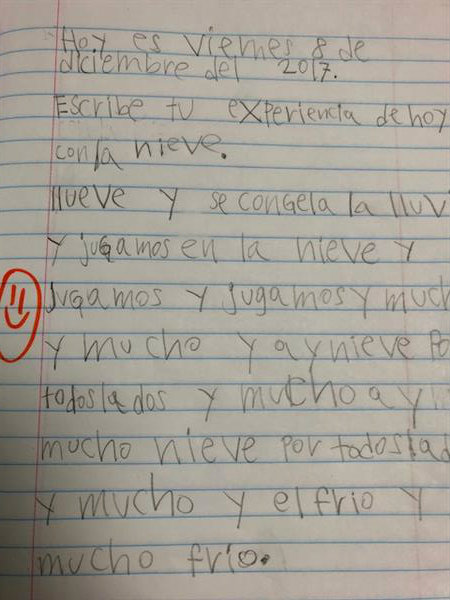 Hoy es viernes 8 de
diciembre del 2017.
Escribe tu experiencia de hoy
con la nieve.
llueve y se congela la lluv
y jugamos en la nieve y
jugamos y jugamos y much
y mucho y ay nieve Po
todos lados y mucho ay
mucho nieve por todos lad
y mucho y el frio y
mucho frio.